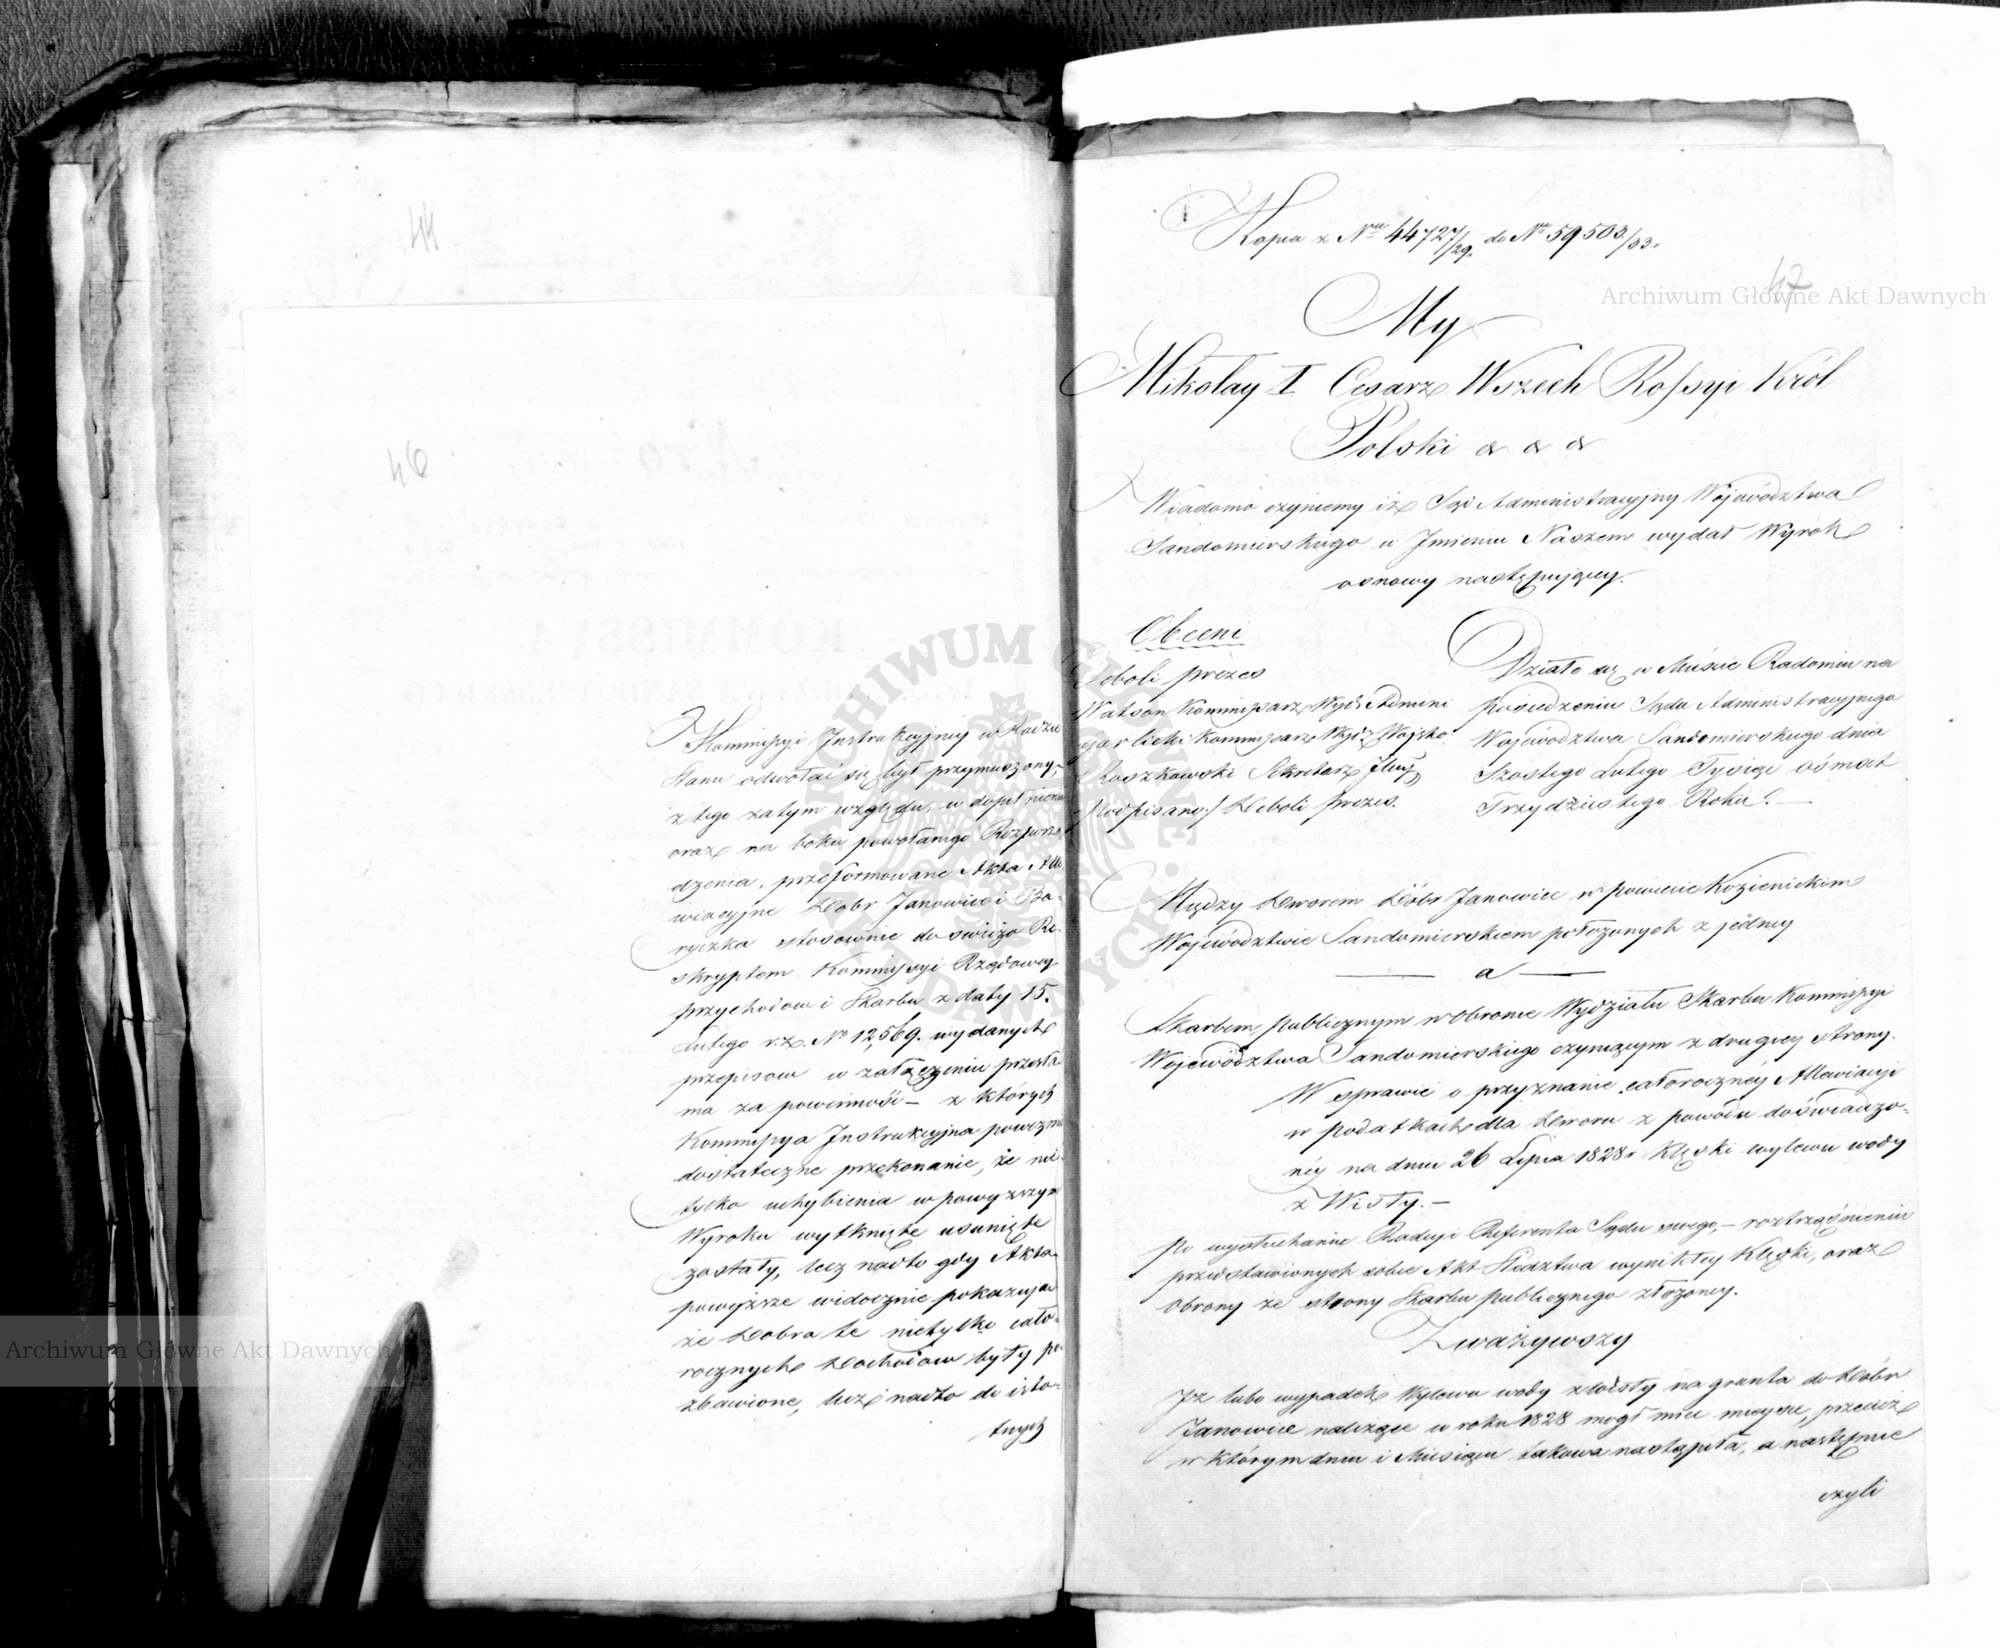 44
46
Kommissyi Instrukcyjney w Radzie
Stanu odwołać się był przymuszony,
z tego zatym względu, w dopełnieniu
oraz na boku powołanego Rozporzą
dzenia, przeformowane Akta Alle
wiacyjne Dobr Janowiec i Ba-
ryczka stosownie do świeżo Re-
skryptem Kommissyi Rządowey
przychodow i Skarbu z daty 15.
Lutego r.b. No 12,569. wydanych
przepisow w załączeniu przesła
ma za powinność – z których
Kommissya Instrukcyjna poweźmie
dostateczne przekonanie, że nie
tylko uchybienia w powyższym
Wyroku wytknięte usunięte
zostały, lecz nadto gdy Akta
powyższe widocznie pokazują
że Dobra te nietylko cało-
rocznych Dochodow były po
zbawione, lecz nadto do isto-
tnych
Kopia z Nru 44727/29. do Nru 59503/33.
47
My
Mikołay I Cesarz Wszech Rossyi Król
Polski & & &
Wiadomo czyniemy iż Sąd Administracyjny Województwa
Sandomierskiego w Jmieniu Naszem wydał Wyrok
osnowy następującey.
Obecni
Deboli prezes
Watson Kommissarz Wydz: Admini
Garlicki Kommissarz Wydz: Woysko.
Roszkowski Sekretarz Jlny
/podpisano:/ Deboli prezes.
Działo się w Mieście Radomiu na
posiedzeniu Sądu Administracyjnego
Województwa Sandomierskiego dnia
Szóstego Lutego Tysiąc ośmset
Trzydziestego Roku. —
Między Dworem Dóbr Janowiec w powiecie Kozienickim
Województwie Sandomierskiem położonych z jedney
a
Skarbem publicznym w Obronie Wydziału Skarbu Kommissyi
Województwa Sandomierskiego czyniącym z drugiey strony.
W sprawie o przyznanie całoroczney Allewiacyi
w podatkach dla Dworu z powodu doświadczo-
ney na dniu 26 Lipca 1828 r. Klęski wylewu wody
z Wisły. –
Po wysłuchaniu Radcy i Referenta Sądu swego, – roztrząśnieniu
przedstawionych sobie Akt Śledztwa wynikłey Klęski, oraz
Obrony ze strony Skarbu publicznego złożoney.
Zważywszy
Jż lubo wypadek Wylewu wody z Wisły na grunta do Dóbr
Janowiec należące w roku 1828 mógł mieć mieysce, przecież
w którym dniu i Miesiącu takowa nastąpiła, a następnie
czyli
Archiwum Główne Akt Dawnych
Archiwum Główne Akt Dawnych
ARCHIWUM GŁÓWNE AKT DAWNYCH